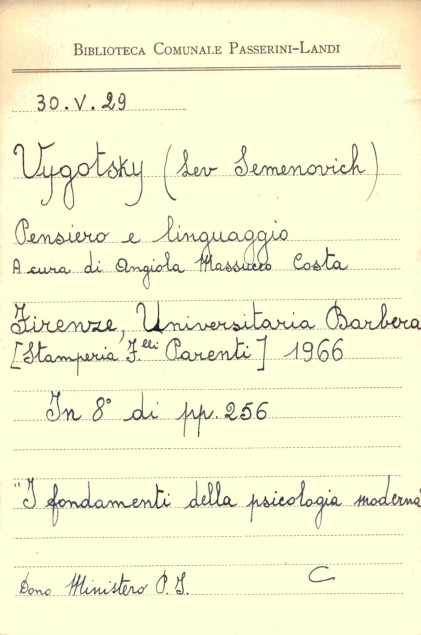 BIBLIOTECA COMUNALE PASSERINI-LANDI
30.V.29
Vygotsky (Lev Semenovich)
Pensiero e linguaggio
A cura di Angiola Massucco Costa
Firenze, Universitaria Barbera
[Stamperia F.lli Parenti] 1966
In 8° di pp. 256
"I fondamenti della psicologia moderna"
Dono Ministero P. I. C